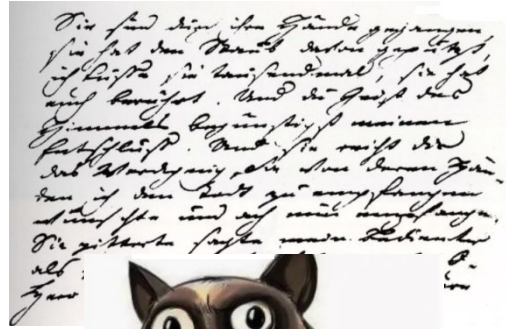 Sie sind durch ihre Hände gegangen,
sie hat den Staub davon geputzt,
ich küsse sie tausendmal, sie hat
euch berührt. Und du Geist des
Himmels begünstigst meinen
Entschluss. Und sie reicht dir
das Werckzeug, sie von deren Hän-
den ich den Todt zu empfangen
wünschte und ach nun empfange.
Sie zitterte sagte mein Bedienter
als